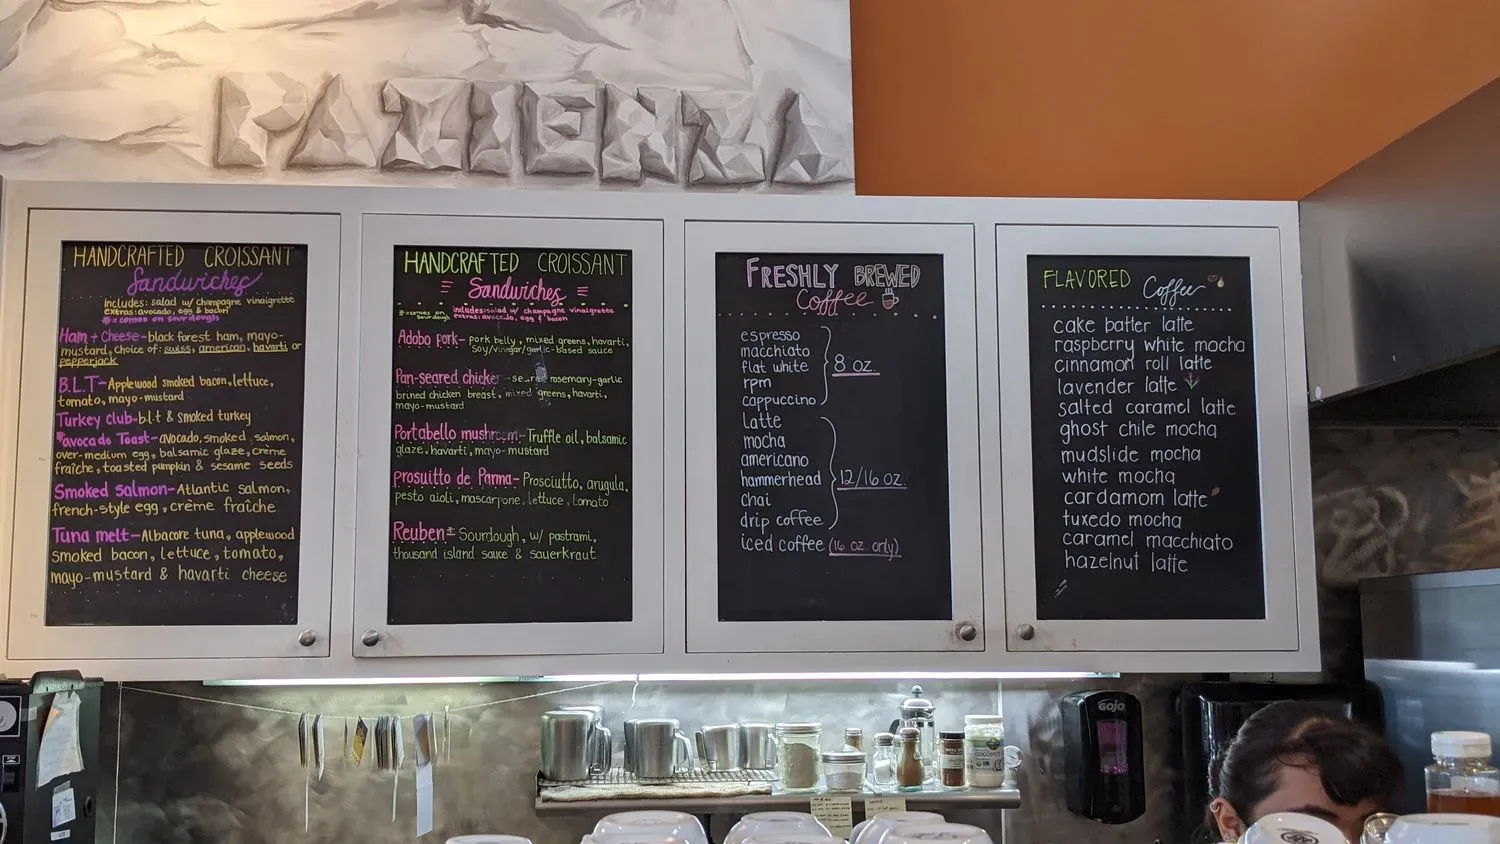 PAZIENZA
HANDCRAFTED CROISSANT
Sandwiches
includes: salad w/ champagne vinaigrette
extras: avocado, egg & bacon
*= comes on sourdough
Ham + Cheese-black forest ham, mayo-
mustard, choice of: swiss, american, havarti or
pepperjack
B.L.T-Applewood smoked bacon, lettuce,
tomato, mayo-mustard
Turkey club-b.l.t & smoked turkey
*avocado Toast-avocado, smoked salmon,
over-medium egg, balsamic glaze, creme
fraîche, toasted pumpkin & sesame seeds
Smoked salmon-Atlantic salmon,
french-style egg, crème fraîche
Tuna melt-Albacore tuna, applewood
smoked bacon, lettuce, tomato,
mayo-mustard & havarti cheese
HANDCRAFTED CROISSANT
Sandwiches
*=comes on sourdough
includes: salad w/ champagne vinaigrette
extras: avocado, egg & bacon
Adobo pork- pork belly, mixed greens, havarti,
soy/vinegar/garlic-based sauce
Pan-seared chicken -seared rosemary-garlic
brined chicken breast, mixed greens, havarti,
mayo-mustard
Portabello mushroom-Truffle oil, balsamic
glaze, havarti, mayo-mustard
prosuitto de Parma- Prosciutto, arugula,
pesto aioli, mascarpone, lettuce, tomato
Reuben* Sourdough, w/ pastrami,
thousand island sauce & sauerkraut
FRESHLY BREWED
Coffee
espresso
macchiato
flat white
rpm
cappuccino
8 oz.
latte
mocha
americano
hammerhead
chai
drip coffee
12/16 oz.
iced coffee (16 oz only)
FLAVORED Coffee
cake batter latte
raspberry white mocha
cinnamon roll latte
lavender latte
salted caramel latte
ghost chile mocha
mudslide mocha
white mocha
cardamom latte
tuxedo mocha
caramel macchiato
hazelnut latte
GOJO
COCONUT